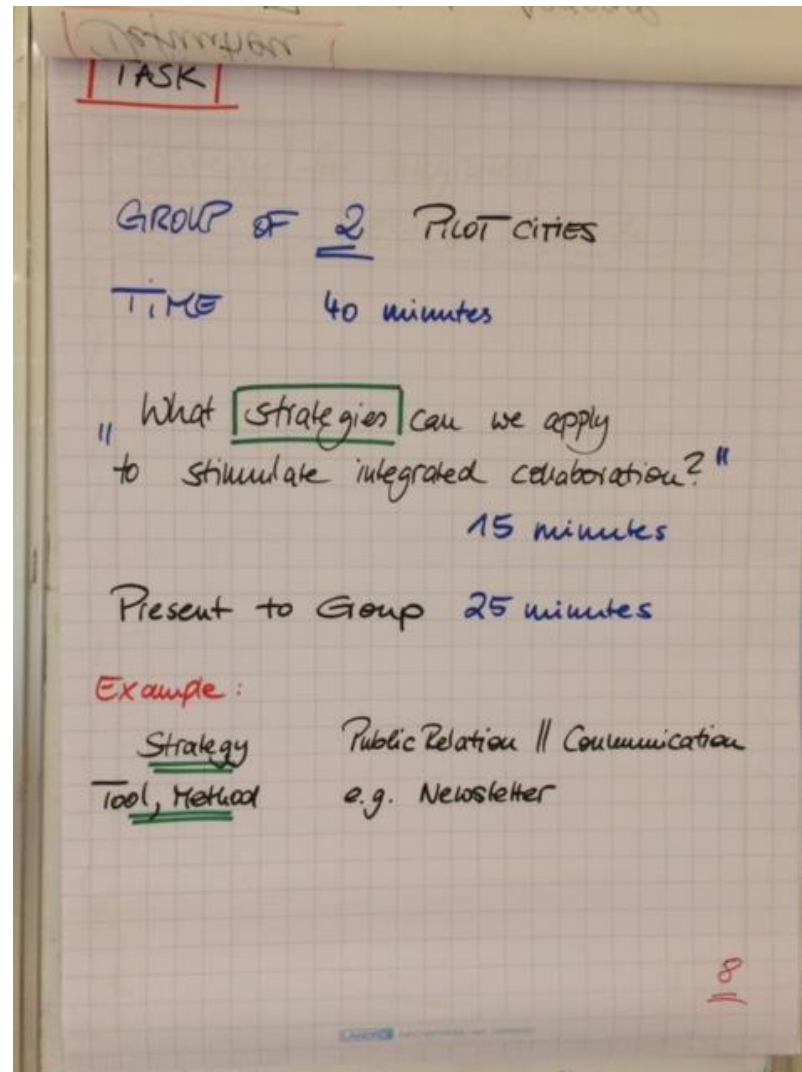 Definition
TASK
GROUP OF 2 PILOT CITIES
TIME 40 minutes
„ What strategies can we apply
to stimulate integrated collaboration? "
15 minutes
Present to Group 25 minutes
Example:
Strategy Public Relation || Communication
Tool, Method e.g. Newsletter
8